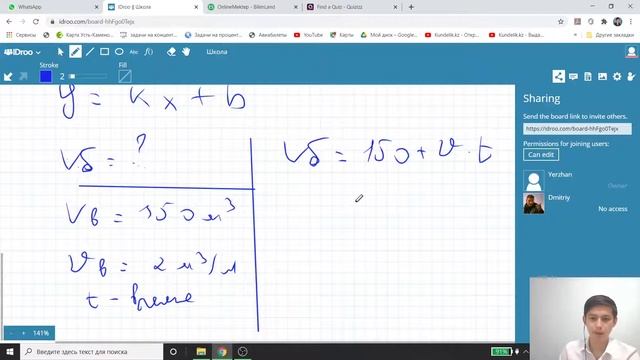 WhatsApp
IDroo || Школа
OnlineMektep - BilimLand
Find a Quiz - Quizizz
idroo.com/board-hhFgo0Tejx
Приложения
Карта Усть-Камено...
задачи на концент...
Авиабилеты
Kundelik.kz
Мой диск – Google...
Kundelik.kz
Задачи на процент...
Другие закладки
IDroo
Stroke
2
Fill
y = kx + b
Vδ = ?
Vδ = 150 + v · t
Vв = 150 м³
vв = 2 м³/м
t - время
141%
Sharing
Send the board link to invite others.
https://idroo.com/board-hhFgo0Tejx
Permissions for joining users:
Can edit
Yerzhan
Owner
Dmitriy
No access
Введите здесь текст для поиска
91%